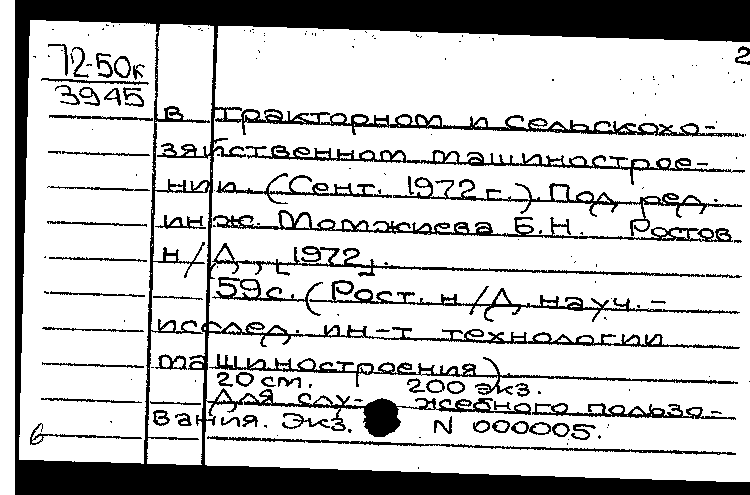 2
72-50к
3945
в тракторном и сельскохо-
зяйственном машинострое-
нии. (Сент. 1972 г.). Под ред.
инж. Момжиева Б.Н. Ростов
н/Д, [1972].
59с. (Рост. н/Д. науч.-
исслед. ин-т технологии
машиностроения).
20 см. 200 экз.
Для слу- жебного пользо-
вания. Экз. N 000005.
в